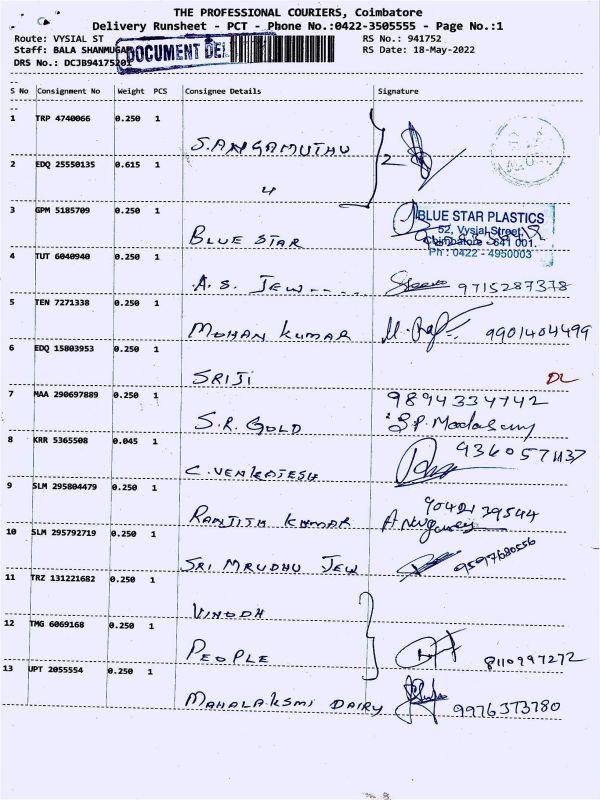 THE PROFESSIONAL COURIERS, Coimbatore
Delivery Runsheet - PCT - Phone No.:0422-3505555 - Page No.:1
Route: VYSIAL ST RS No.: 941752
Staff: BALA SHANMUGAM RS Date: 18-May-2022
DRS No.: DCJB94175201
DOCUMENT DEL
S No Consignment No Weight PCS Consignee Details Signature
1 TRP 4740066 0.250 1
S.ANGAMUTHU 2
2 EDQ 25550135 0.615 1
4
3 GPM 5185709 0.250 1
BLUE STAR
BLUE STAR PLASTICS
52, Vysial Street,
Coimbatore - 641 001.
Ph : 0422 - 4950003
4 TUT 6040940 0.250 1
A. S. JEW---- 9715287378
5 TEN 7271338 0.250 1
MOHAN KUMAR 9901404499
6 EDQ 15803953 0.250 1
SRIJI DL
7 MAA 290697889 0.250 1 9894334742
S.R. GOLD
8 KRR 5365508 0.045 1
C. VENKATESH
9 SLM 295804479 0.250 1
RANJITH KUMAR
10 SLM 295792719 0.250 1
SRI MRUDHU JEW 9597680556
11 TRZ 131221682 0.250 1
VINODH
12 TMG 6069168 0.250 1
PEOPLE 8110997272
13 UPT 2055554 0.250 1
MAHALAKSMI DAIRY 9976373780